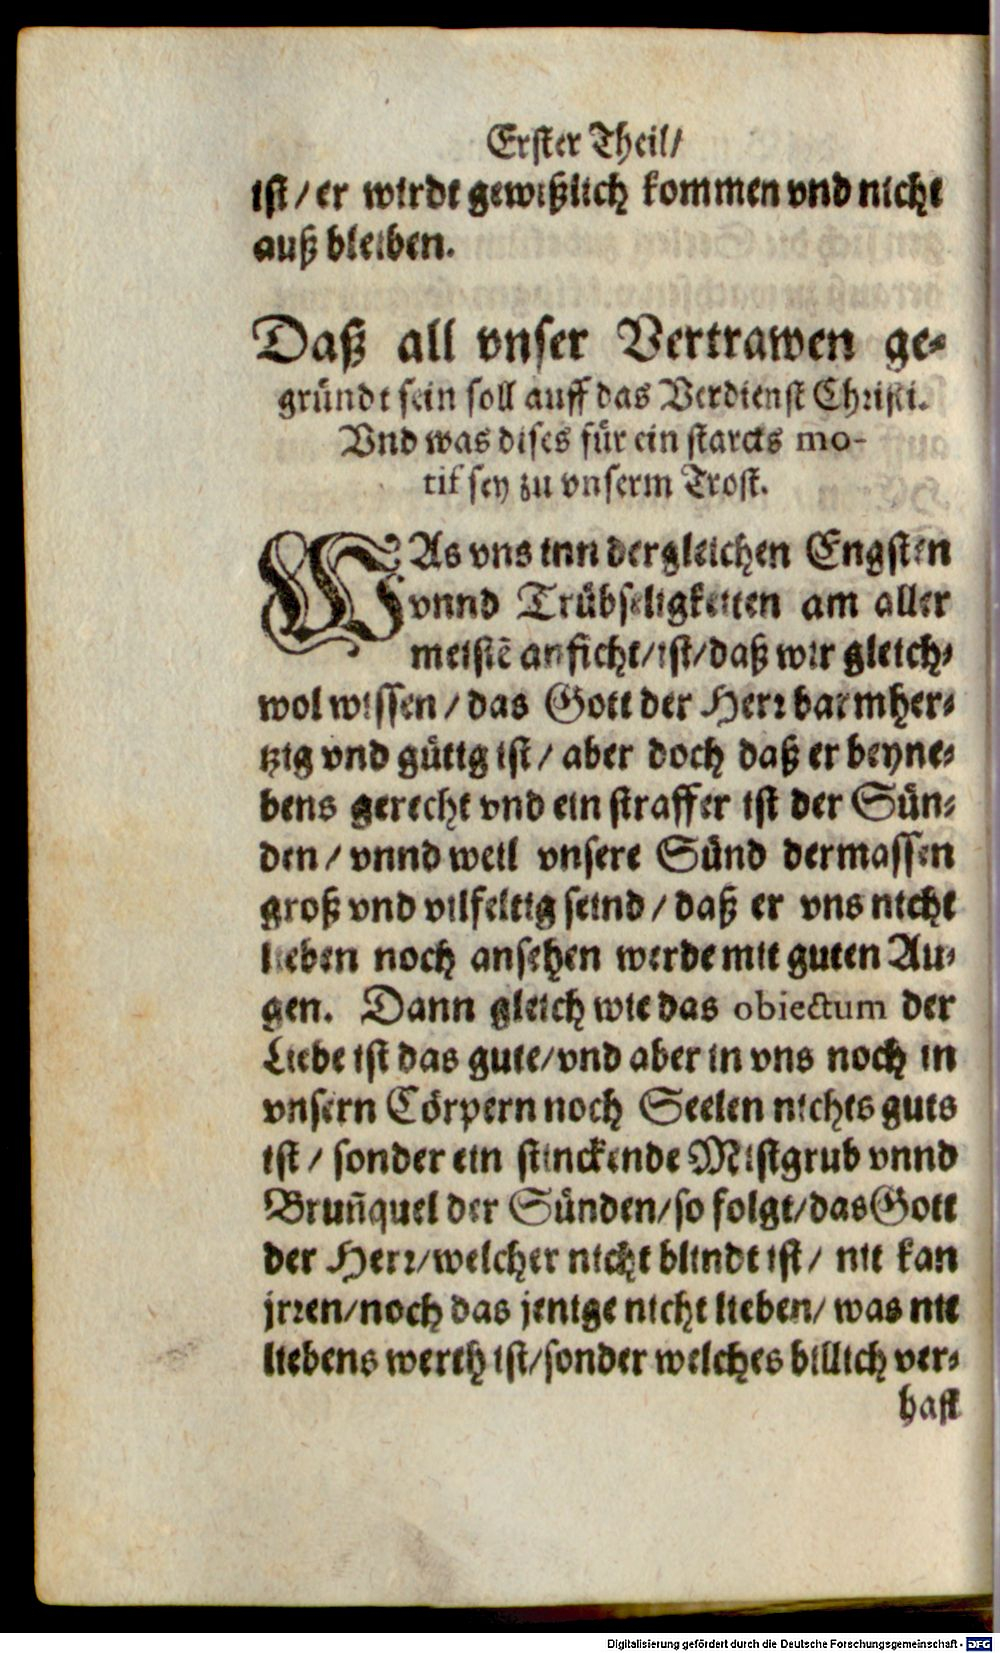 Erster Theil/
ist/ er wirdt gewißlich kommen vnd nicht
auß bleiben.
Daß all vnser Vertrawen ge-
gründt sein soll auff das Verdienst Christi.
Vnd was dises für ein starcks mo-
tif sey zu vnserm Trost.
WAs vns inn dergleichen Engsten
vnnd Trübseligkeiten am aller
meistē anficht/ist/daß wir gleich-
wol wissen/ das Gott der Herr barmher-
tzig vnd gütig ist/ aber doch daß er beyne-
bens gerecht vnd ein straffer ist der Sün-
den/ vnnd weil vnsere Sünd dermassen
groß vnd vilfeltig seind/ daß er vns nicht
lieben noch ansehen werde mit guten Au-
gen. Dann gleich wie das obiectum der
Liebe ist das gute/vnd aber in vns noch in
vnsern Cörpern noch Seelen nichts guts
ist/ sonder ein stinckende Mistgrub vnnd
Brun̄quel der Sünden/so folgt/das Gott
der Herr/welcher nicht blindt ist/ nit kan
jrren/noch das jenige nicht lieben/ was nit
liebens werth ist/sonder welches billich ver-
hast
Digitalisierung gefördert durch die Deutsche Forschungsgemeinschaft - DFG